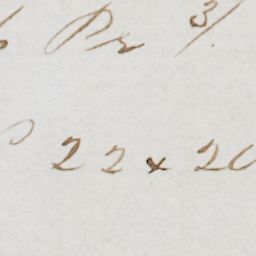 Pr 3/.
22 x 20